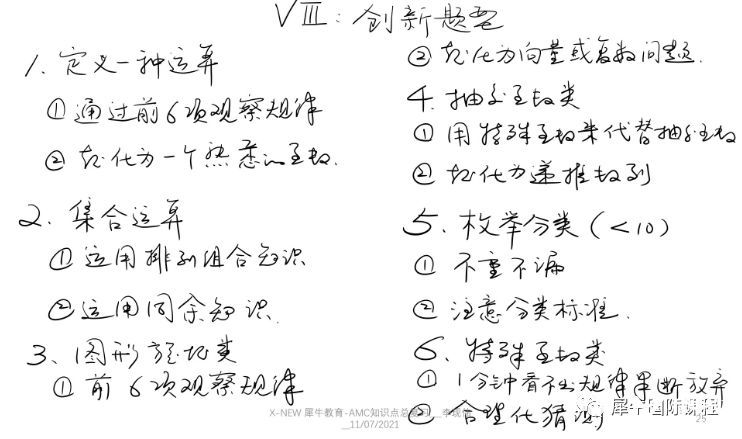 VIII：创新题型
1、定义一种运算
① 通过前6项观察规律
② 转化为一个熟悉的函数.
2、集合运算
① 运用排列组合知识
② 运用同余知识.
3、图形变换类
① 前6项观察规律
② 转化为向量或复数问题.
4、抽象函数类
① 用特殊函数来代替抽象函数
② 转化为递推数列
5、枚举分类（<10）
① 不重不漏
② 注意分类标准.
6、特殊函数类
① 1分钟看不出规律果断放弃
② 合理化猜测
X-NEW 犀牛教育-AMC知识点总
_11/07/2021
犀牛国际课程